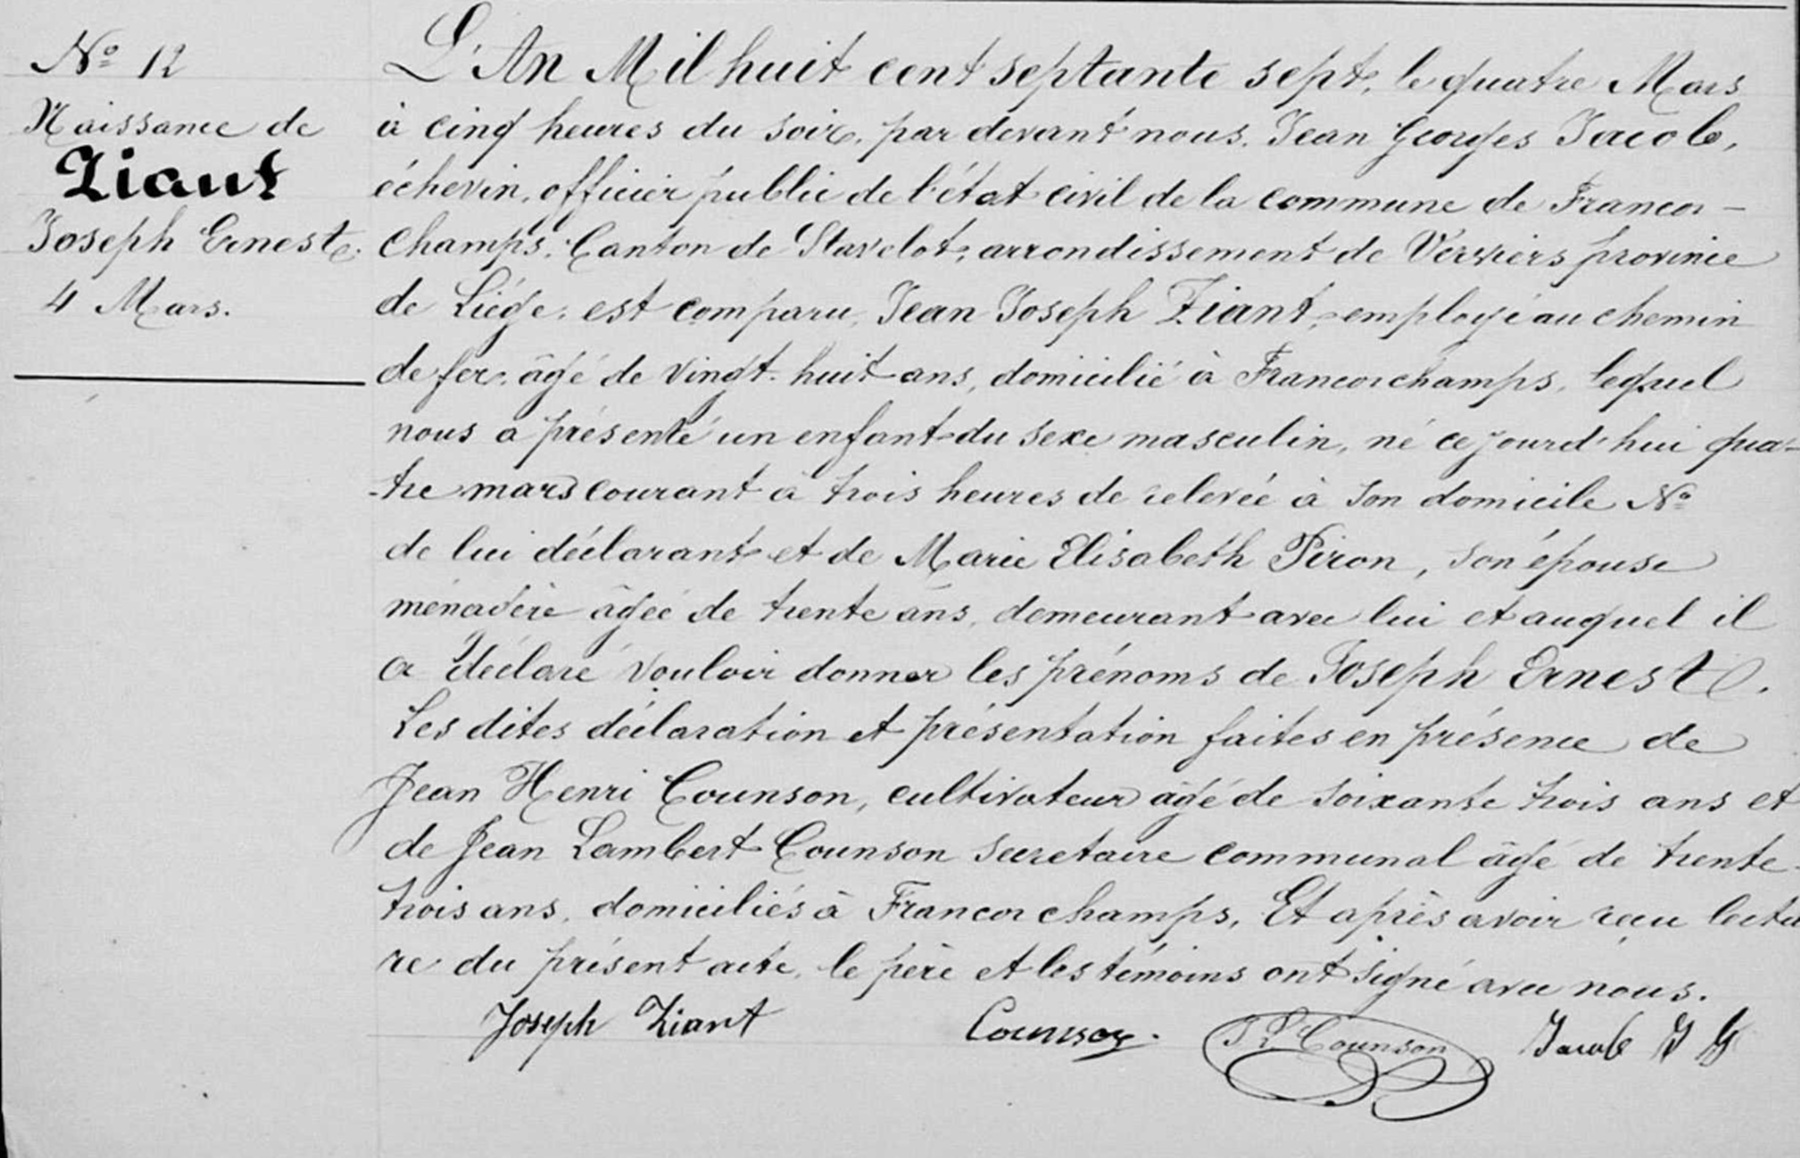 No 12
Naissance de
Ziant
Joseph Ernest.
4 Mars.
L'An Mil huit cent septante sept, le quatre Mars
à cinq heures du soir, par devant nous, Jean Georges Jacob,
échevin, officier public de l'état civil de la commune de Francor-
champs, Canton de Stavelot, arrondissement de Verviers province
de Liége, est comparu, Jean Joseph Ziant, employé au chemin
de fer, âgé de vingt-huit ans, domicilié à Francorchamps, lequel
nous a présenté un enfant du sexe masculin, né cejourd'hui qua-
-tre mars courant à trois heures de relevée à son domicile No
de lui déclarant et de Marie Elisabeth Piron, son épouse
ménagère âgée de trente ans, demeurant avec lui et auquel il
a déclaré vouloir donner les prénoms de Joseph Ernest.
Les dites déclaration et présentation faites en présence de
Jean Henri Counson, cultivateur âgé de soixante trois ans et
de Jean Lambert Counson secretaire communal âgé de trente-
trois ans, domiciliés à Francorchamps, Et après avoir reçu lectu
re du présent acte, le père et les témoins ont signé avec nous.
Joseph Ziant Counson. J L Counson Jacob J G